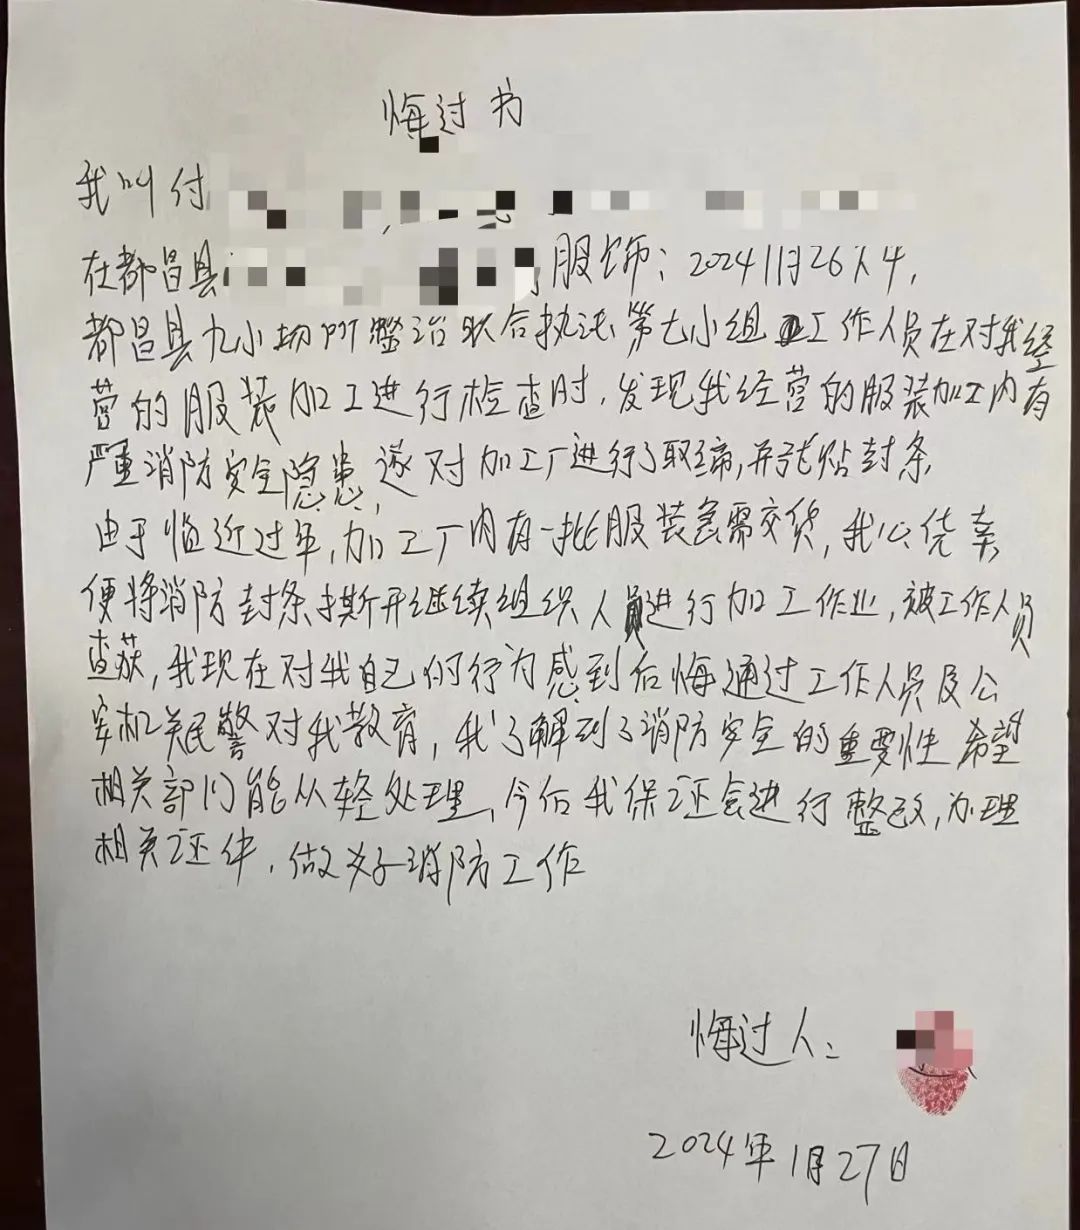 悔过书
我叫付
在都昌县 服饰；2024 1月26下午，
都昌县九小场所整治联合执法第七小组工作人员在对我经
营的服装加工进行检查时，发现我经营的服装加工内有
严重消防安全隐患，遂对加工厂进行了取缔，并张贴封条，
由于临近过年，加工厂内有一批服装急需交货，我心侥幸
便将消防封条撕开继续组织人员进行加工作业，被工作人员
查获，我现在对我自己的行为感到后悔通过工作人员及公
安机关民警对我教育，我了解到了消防安全的重要性希望
相关部门能从轻处理，今后我保证会进行整改，办理
相关证件，做好消防工作
悔过人：
2024年1月27日